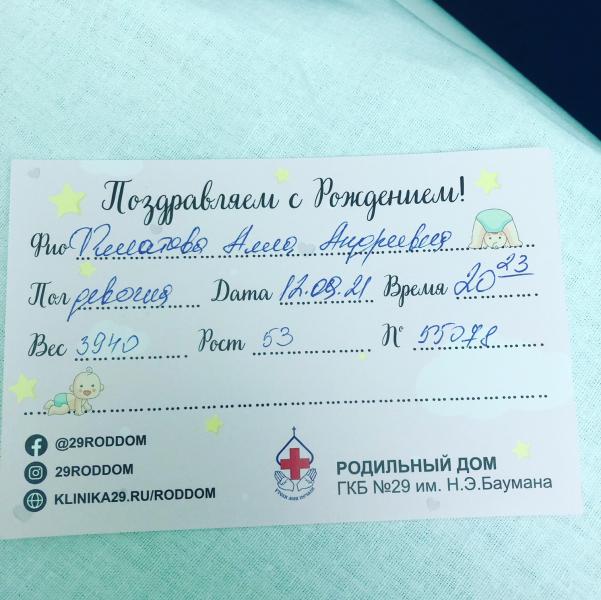 Поздравляем с Рождением!
Фио Алла Андреевна
Пол девочка Дата 12.09.21 Время 20 23
Вес 3940 Рост 53 N° 55078
@29RODDOM
29RODDOM
KLINIKA29.RU/RODDOM
РОДИЛЬНЫЙ ДОМ
ГКБ №29 им. Н.Э.Баумана
УТОЛИ МОИ ПЕЧАЛИ